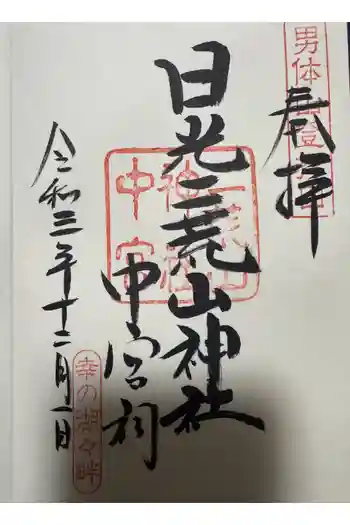 奉拝
日光二荒山神社
中宮祠
令和三年十二月一日
幸の湖々畔